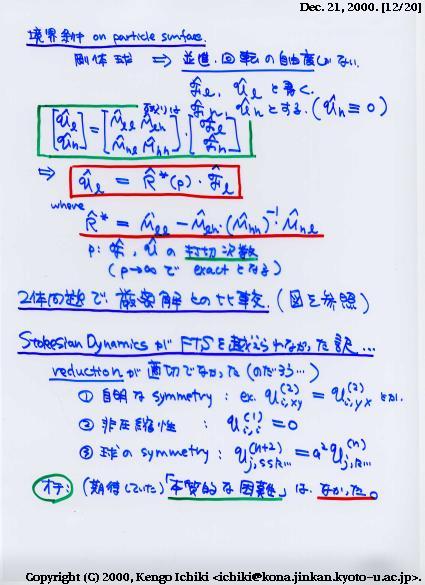 Dec. 21, 2000. [12/20]
境界条件 on particle surface.
剛体球 ⇒ 並進、回転の自由度しかない。
𝓕̂ℓ, 𝓤̂ℓ と書く。
残りは 𝓕̂h, 𝓤̂h とする. (𝓤̂h ≡ 0)
[𝓤̂ℓ 𝓤̂h] = [M̂ℓℓ M̂ℓh M̂hℓ M̂hh] · [𝓕̂ℓ 𝓕̂h]
⇒ 𝓤̂ℓ = R̂*(p) · 𝓕̂ℓ
where
R̂* = M̂ℓℓ − M̂ℓh · (M̂hh)⁻¹ · M̂hℓ
p: 𝓕̂, 𝓤̂ の 打切次数
(p→∞ で exact となる)
2体問題で、厳密解との比較. (図を参照)
Stokesian Dynamics が FTS を越えられなかった訳...
reduction が適切でなかった (のだろう...)
① 自明な symmetry : ex. 𝓤i,xy(2) = 𝓤i,yx(2) とか.
② 非圧縮性 : 𝓤i,i(1) = 0
③ 球の symmetry : 𝓤j,ssk...(n+2) = a²𝓤j,k...(n)
オチ: (期待していた)「本質的な困難」は、なかった。
Copyright (C) 2000, Kengo Ichiki <ichiki@kona.jinkan.kyoto-u.ac.jp>.